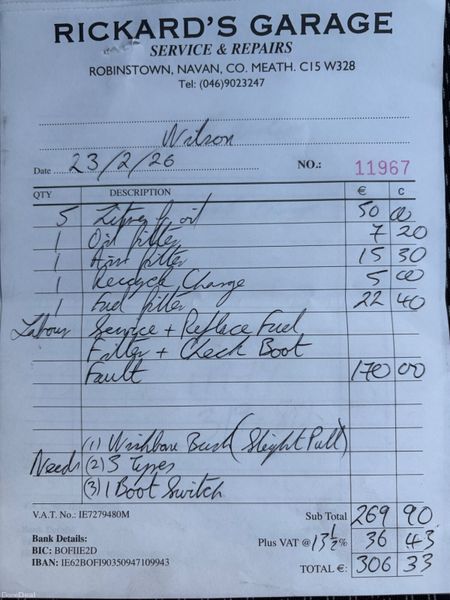 RICKARD'S GARAGE
SERVICE & REPAIRS
ROBINSTOWN, NAVAN, CO. MEATH. C15 W328
Tel: (046)9023247
Wilson
Date 23/2/26 NO.: 11967
QTY DESCRIPTION € C
5 Litres of oil 50 00
1 Oil filter 7 20
1 Air filter 15 30
1 Recycle Change 5 00
1 Fuel filter 22 40
Labour Service + Replace Fuel
Filter + Check Boot
Fault 170 00
(1) Wishbone Bush (Slight Pull)
Needs (2) 3 Tyres
(3) 1 Boot Switch
V.A.T. No.: IE7279480M Sub Total 269 90
Bank Details: Plus VAT @ 13 1/2 % 36 43
BIC: BOFIIE2D
IBAN: IE62BOFI90350947109943 TOTAL €: 306 33
DoneDeal